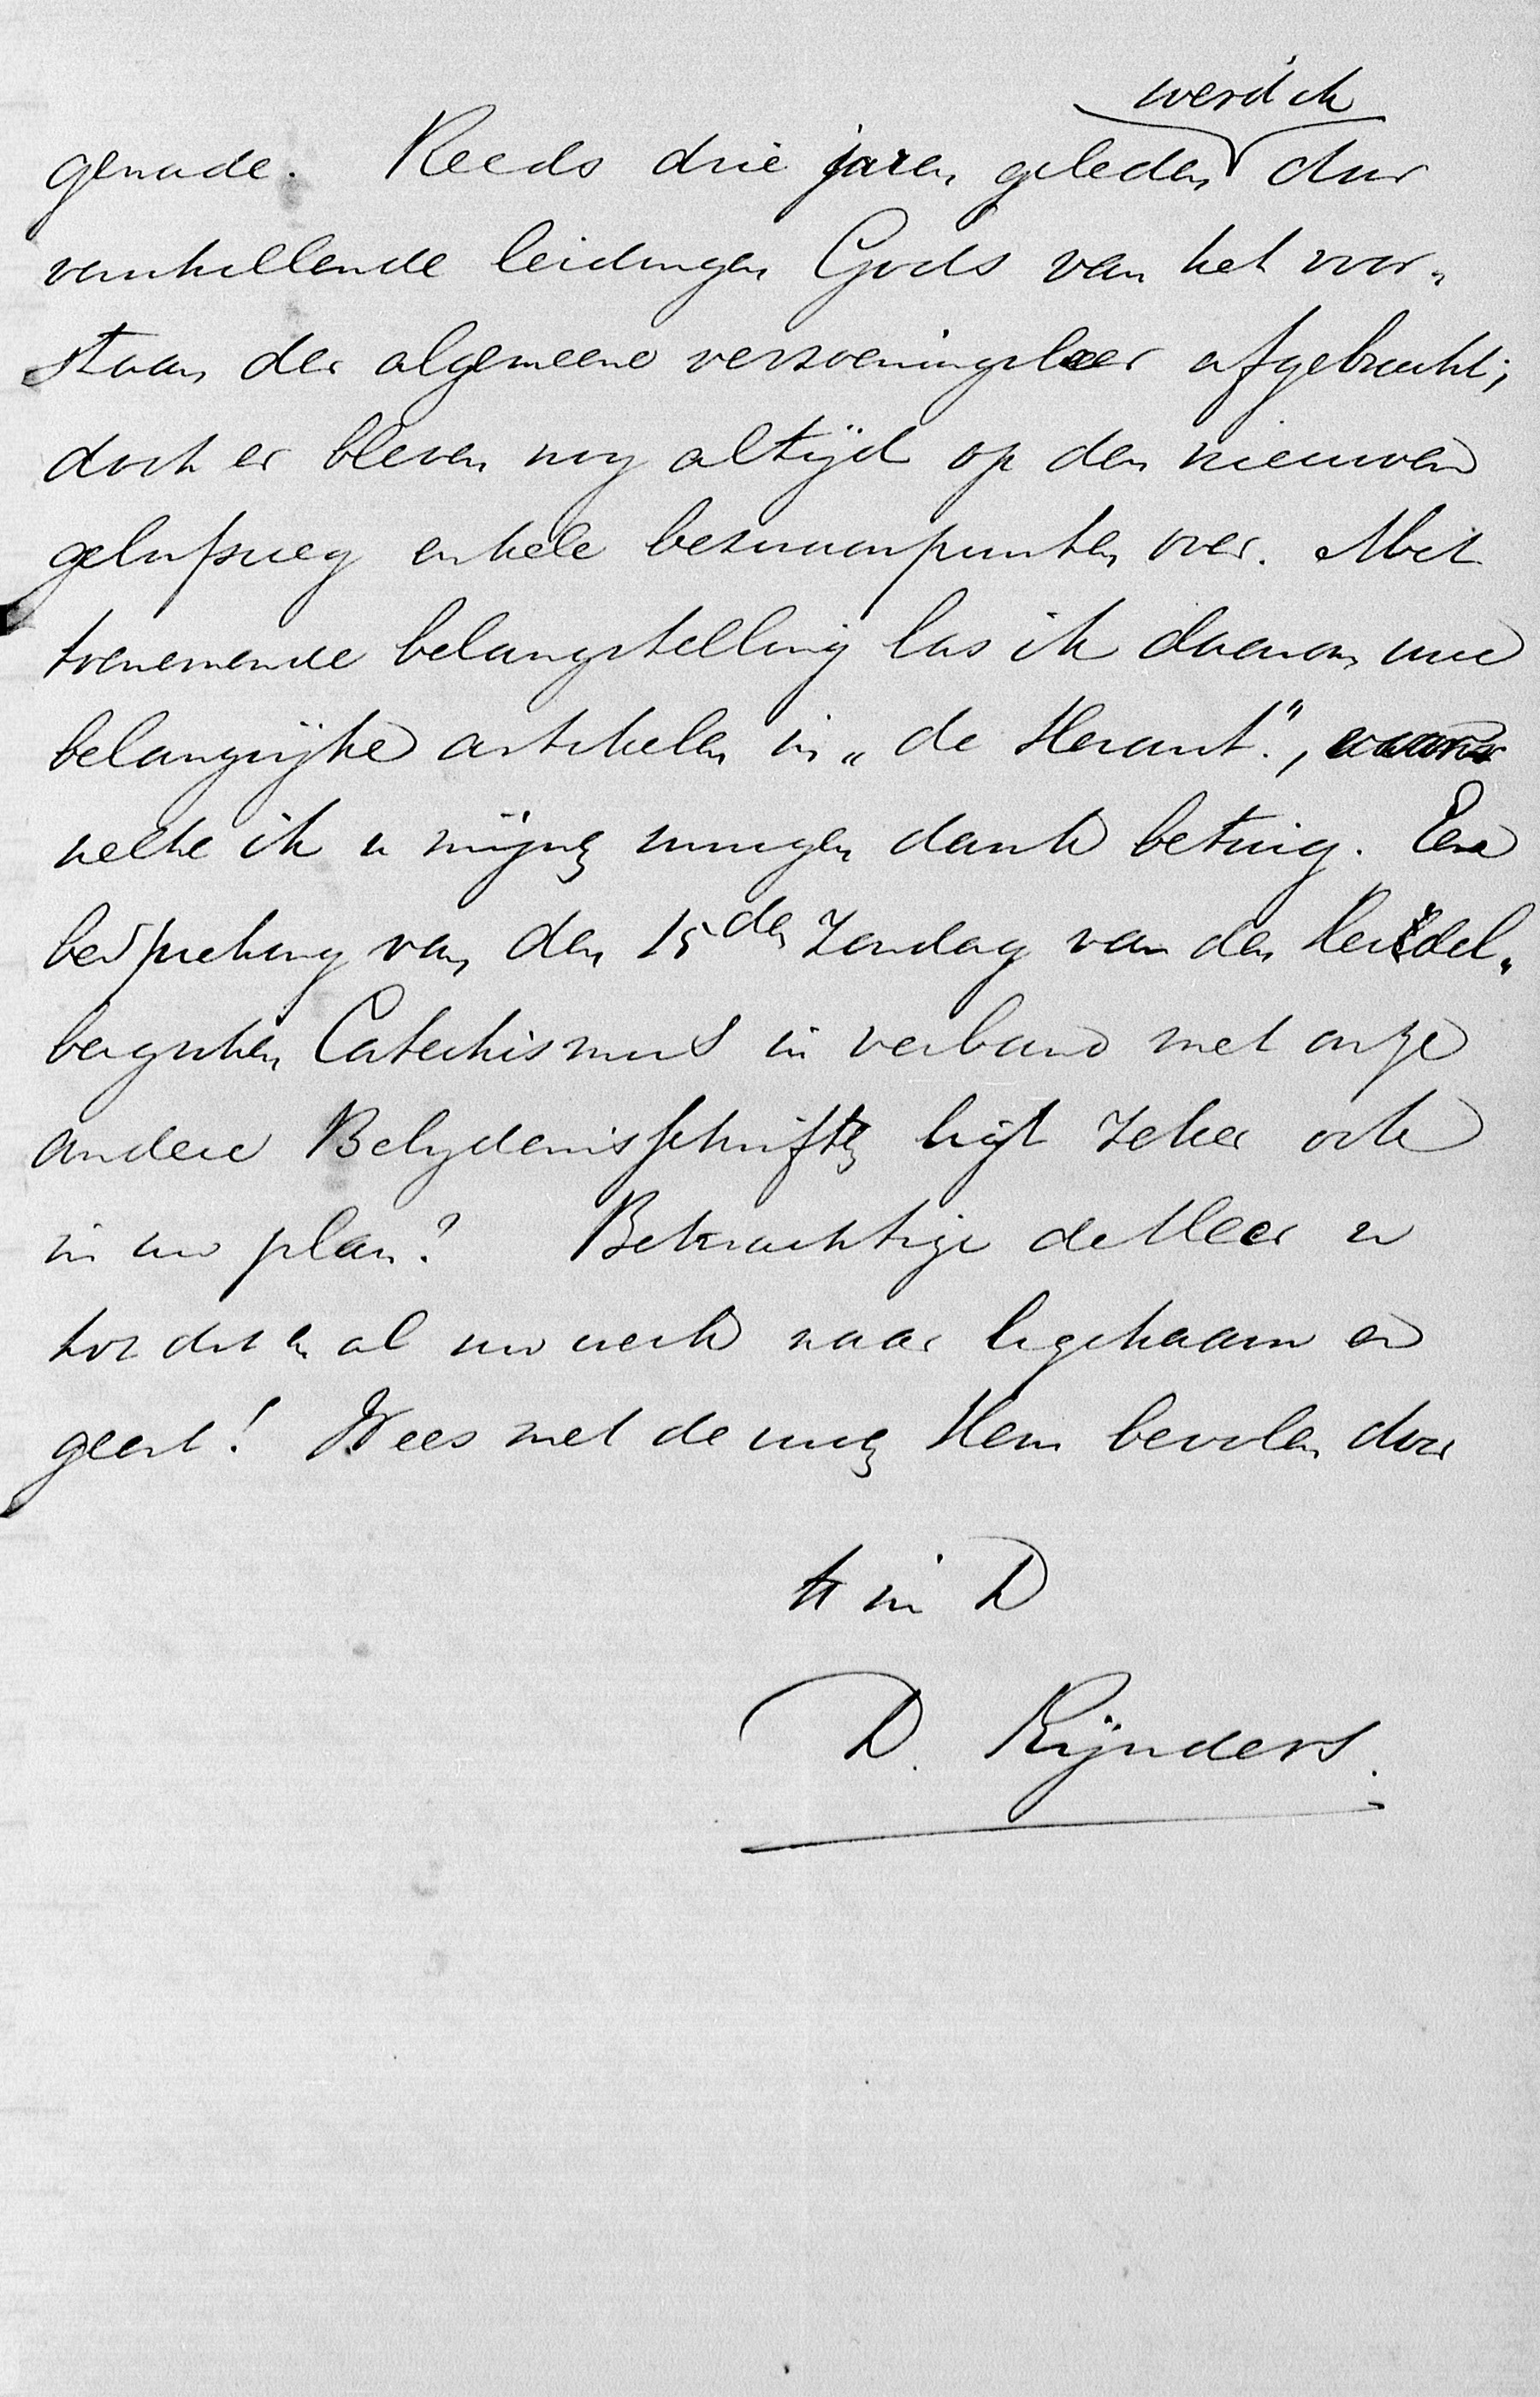 werd ik
genade. Reeds drie jaren geleden door
verschillende leidingen Gods van het voor„
staan der algemeene verzoeningsleer afgebracht;
doch er bleven nog altijd op den nieuwen
geloofsweg enkele bezwaarpunten over. Met
toenemende belangstelling las ik daarom uwe
belangrijke artikelen in „de Heraut", voor
welke ik u mijnen innigen dank betuig. Eene
bespreking van den 15den Zondag van den Heidel„
bergschen Catechismus in verband met onze
andere Belydenisschriften ligt zeker ook
in uw plan? Bekrachtige de Heer u
tot dit en al uw werk naar ligchaam en
geest! Wees met de uwen Hem bevolen door
tt in D
D. Rijnders.